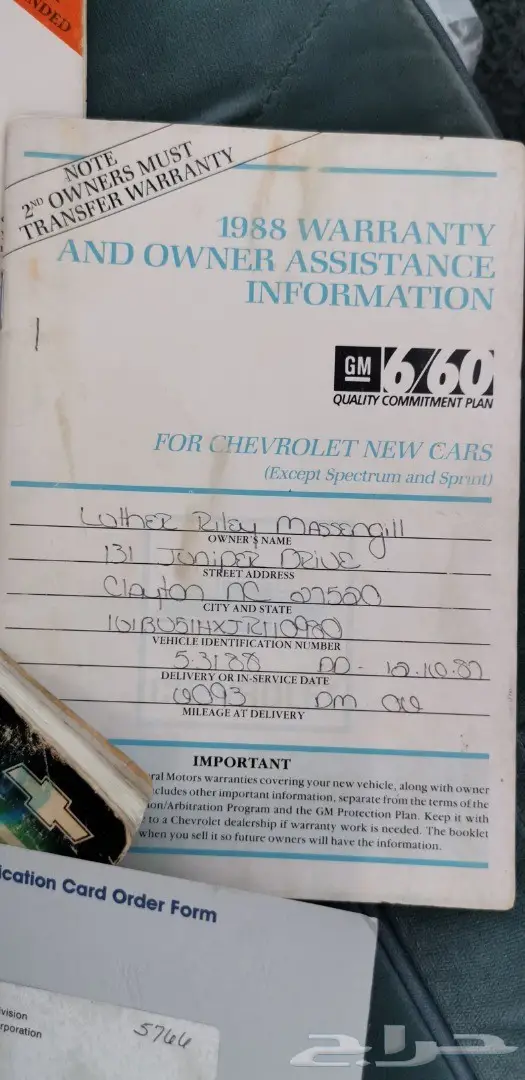 NDED
NOTE
2ND OWNERS MUST
TRANSFER WARRANTY
1988 WARRANTY
AND OWNER ASSISTANCE
INFORMATION
GM 6/60
QUALITY COMMITMENT PLAN
FOR CHEVROLET NEW CARS
(Except Spectrum and Sprint)
Luther Riley Massengill
OWNER'S NAME
131 Juniper Drive
STREET ADDRESS
Clayton NC 27520
CITY AND STATE
1G1BU51HXJR110980
VEHICLE IDENTIFICATION NUMBER
5-31-88 DD- 12.10.87
DELIVERY OR IN-SERVICE DATE
6093 DM
MILEAGE AT DELIVERY
IMPORTANT
ral Motors warranties covering your new vehicle, along with owner
cludes other important information, separate from the terms of the
ion/Arbitration Program and the GM Protection Plan. Keep it with
to a Chevrolet dealership if warranty work is needed. The booklet
when you sell it so future owners will have the information.
ication Card Order Form
vision
rporation
5766
حراج